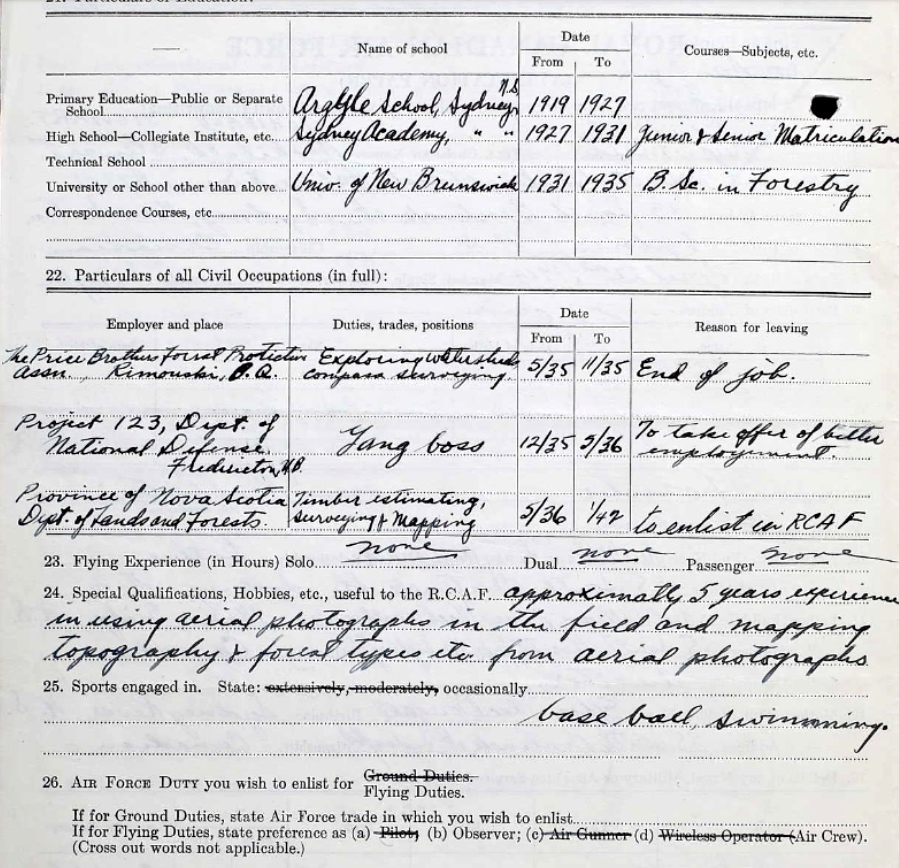 21. Particulars of Education:
Name of school Date Courses—Subjects, etc.
From To
N.S.
Primary Education—Public or Separate
School Argyle School, Sydney, 1919 1927
High School—Collegiate Institute, etc. Sydney Academy, " " 1927 1931 Junior & Senior Matriculation
Technical School
University or School other than above Univ. of New Brunswick 1931 1935 B. Sc. in Forestry
Correspondence Courses, etc.
22. Particulars of all Civil Occupations (in full):
Employer and place Duties, trades, positions Date Reason for leaving
From To
The Price Brothers Forest Protective Exploring watersheds
Assn., Rimouski, P.Q. compass surveying. 5/35 11/35 End of job.
Project 123, Dept. of
National Defense Gang boss 12/35 5/36 To take offer of better
Fredericton, N.B. employement.
Province of Nova Scotia Timber estimating,
Dept. of Lands and Forests. surveying & Mapping 5/36 1/42 to enlist in RCAF
23. Flying Experience (in Hours) Solo none Dual none Passenger none
24. Special Qualifications, Hobbies, etc., useful to the R.C.A.F. approximatly 5 years experience
in using aerial photographs in the field and mapping
topography & forest types etc. from aerial photographs
25. Sports engaged in. State: extensively, moderately, occasionally
base ball, swimming.
26. AIR FORCE DUTY you wish to enlist for Ground Duties.
Flying Duties.
If for Ground Duties, state Air Force trade in which you wish to enlist
If for Flying Duties, state preference as (a) Pilot; (b) Observer; (c) Air Gunner (d) Wireless Operator (Air Crew).
(Cross out words not applicable.)